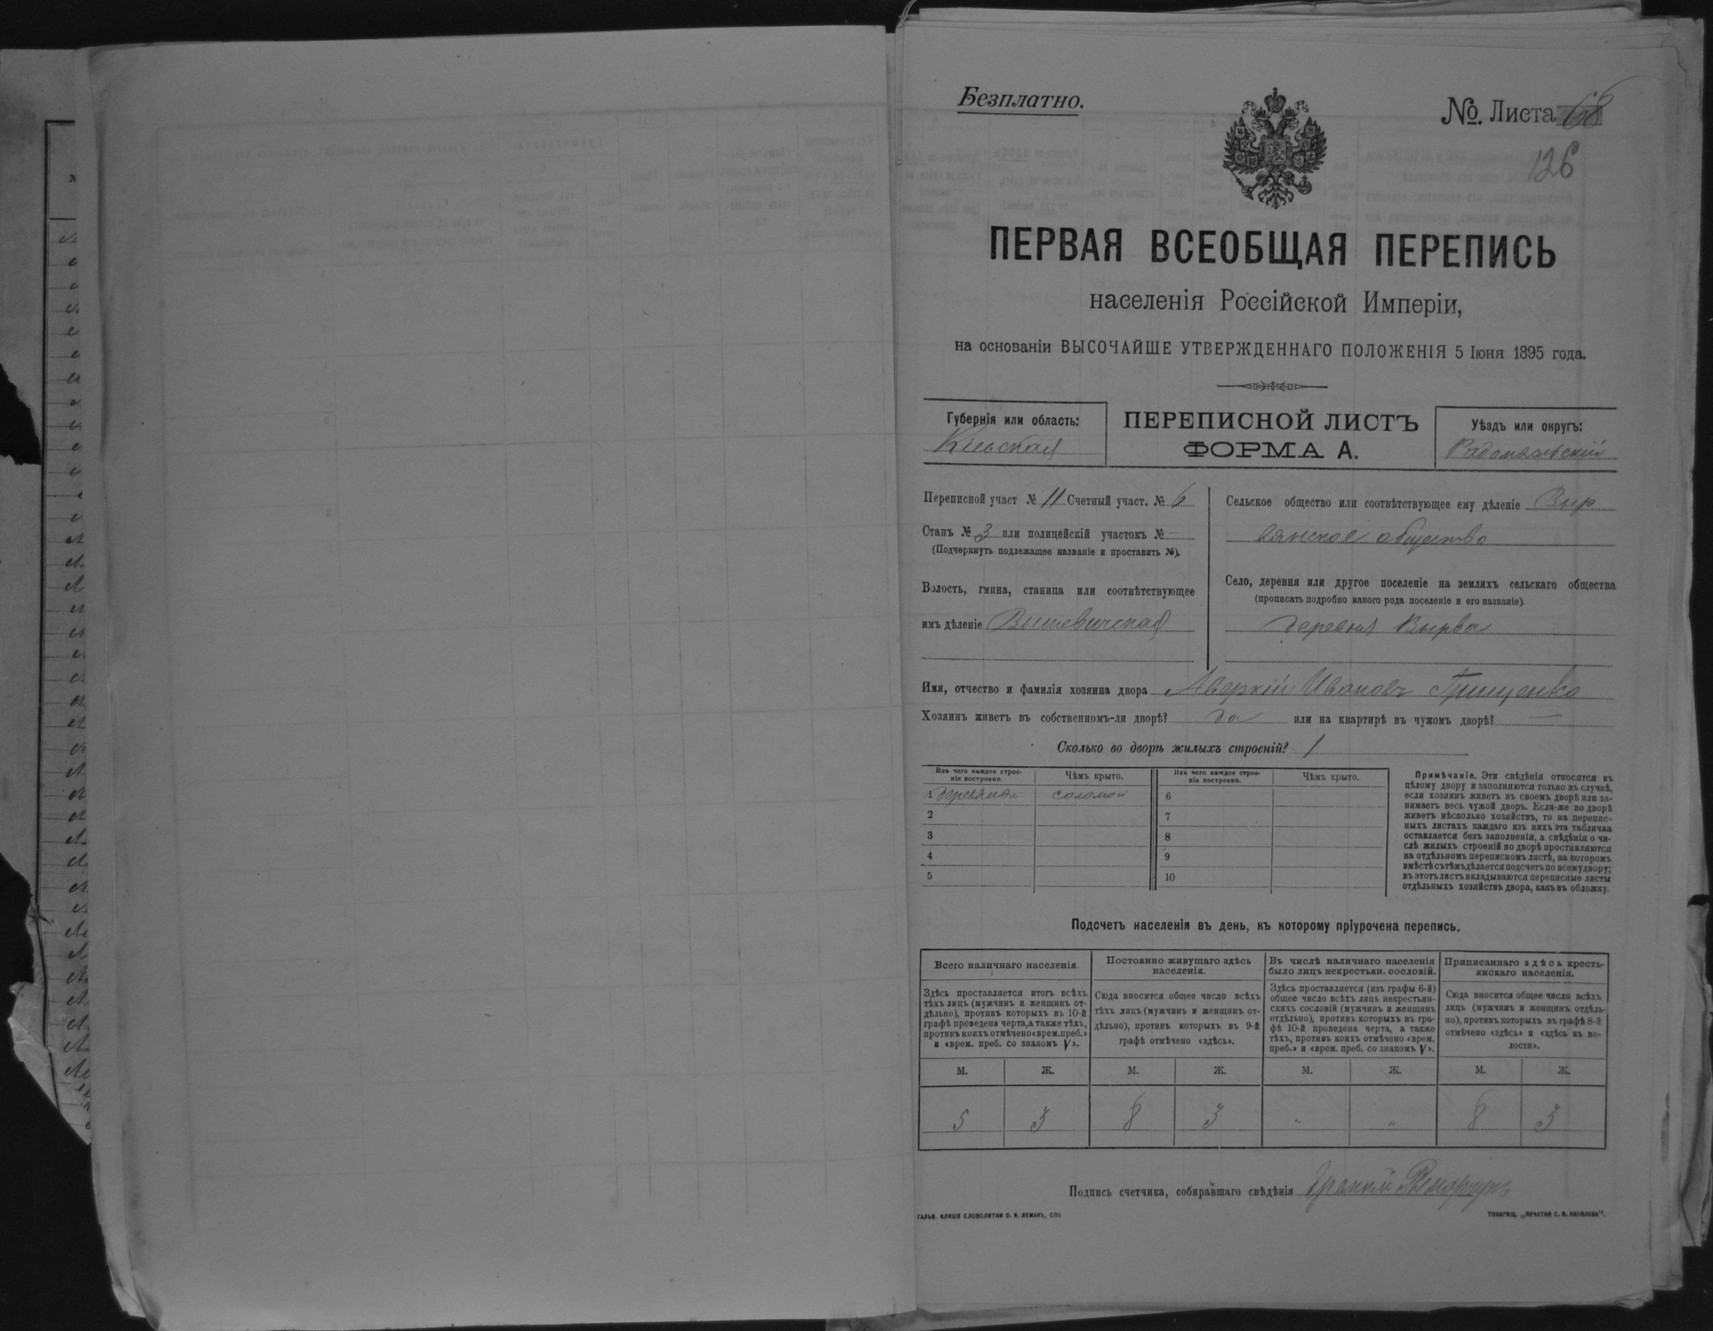 Безплатно.
№ Листа 68
126
ПЕРВАЯ ВСЕОБЩАЯ ПЕРЕПИСЬ
населенія Россійской Имперіи,
на основаніи ВЫСОЧАЙШЕ УТВЕРЖДЕННАГО ПОЛОЖЕНІЯ 5 Іюня 1895 года.
Губернія или область:
Кіевская
ПЕРЕПИСНОЙ ЛИСТЪ
ФОРМА А.
Уѣздъ или округъ:
Радомысльскій
Переписной участ № 11 Счетный участ. № 6
Станъ № 3 или полицейскій участокъ № —
(Подчеркнуть подлежащее названіе и проставить №).
Волость, гмина, станица или соотвѣтствующее
имъ дѣленіе Вышевичская
Сельское общество или соотвѣтствующее ему дѣленіе Выр
вянское общество
Село, деревня или другое поселеніе на земляхъ сельскаго общества
(прописать подробно какого рода поселеніе и его названіе).
деревня Вырва
Имя, отчество и фамилія хозяина двора Аверкій Ивановъ Грищенко
Хозяинъ живетъ въ собственномъ-ли дворѣ? да или на квартирѣ въ чужомъ дворѣ? —
Сколько во дворѣ жилыхъ строеній? 1
Изъ чего каждое строеніе построено.
Чѣмъ крыто.
Изъ чего каждое строеніе построено.
Чѣмъ крыто.
1 соломой 6
2 7
3 8
4 9
5 10
Примѣчаніе. Эти свѣдѣнія относятся къ
цѣлому двору и заполняются только въ случаѣ,
если хозяинъ живетъ въ своемъ дворѣ или за-
нимаетъ весь чужой дворъ. Если-же во дворѣ
живетъ нѣсколько хозяйствъ, то на перепис-
ныхъ листахъ каждаго изъ нихъ эта табличка
оставляется безъ заполненія, а свѣдѣнія о чи-
слѣ жилыхъ строеній во дворѣ проставляются
на отдѣльномъ переписномъ листѣ, на которомъ
вмѣстѣ съ тѣмъ дѣлается подсчетъ по всему двору;
въ этотъ листъ вкладываются переписные листы
отдѣльныхъ хозяйствъ двора, какъ въ обложку.
Подсчетъ населенія въ день, къ которому пріурочена перепись.
Всего наличнаго населенія.
Здѣсь проставляется итогъ всѣхъ
тѣхъ лицъ (мужчинъ и женщинъ от-
дѣльно), противъ которыхъ въ 10-й
графѣ проведена черта, а также тѣхъ,
противъ коихъ отмѣчено «врем. преб.»
и «врем. преб. со знакомъ V».
Постоянно живущаго здѣсь
населенія.
Сюда вносится общее число всѣхъ
тѣхъ лицъ (мужчинъ и женщинъ от-
дѣльно), противъ которыхъ въ 9-й
графѣ отмѣчено «здѣсь».
Въ числѣ наличнаго населенія
было лицъ некрестьян. сословій.
Здѣсь проставляется (изъ графы 6-й)
общее число всѣхъ лицъ некрестьян-
скихъ сословій (мужчинъ и женщинъ
отдѣльно), противъ которыхъ въ гра-
фѣ 10-й проведена черта, а также
тѣхъ, противъ коихъ отмѣчено «врем.
преб.» и «врем. преб. со знакомъ V».
Приписаннаго здѣсь кресть-
янскаго населенія.
Сюда вносится общее число всѣхъ
лицъ (мужчинъ и женщинъ отдѣль-
но), противъ которыхъ въ графѣ 8-й
отмѣчено «здѣсь» и «здѣсь въ во-
лости».
М. Ж. М. Ж. М. Ж. М. Ж.
5 3 8 3 " " 8 3
Подпись счетчика, собиравшаго свѣдѣнія
ГАЛЬВ. КЛИШЕ СЛОВОЛИТНИ О. И. ЛЕМАНЪ, СПб
ТОВАРИЩ. „ПЕЧАТНЯ С. П. ЯКОВЛЕВА“.